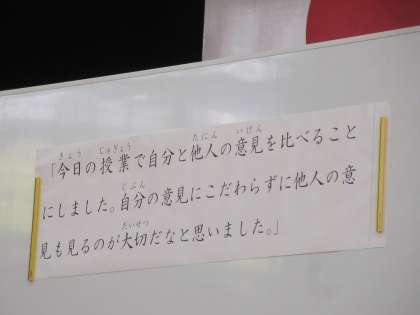 「今日の授業で自分と他人の意見を比べること
にしました。自分の意見にこだわらずに他人の意
見も見るのが大切だなと思いました。」